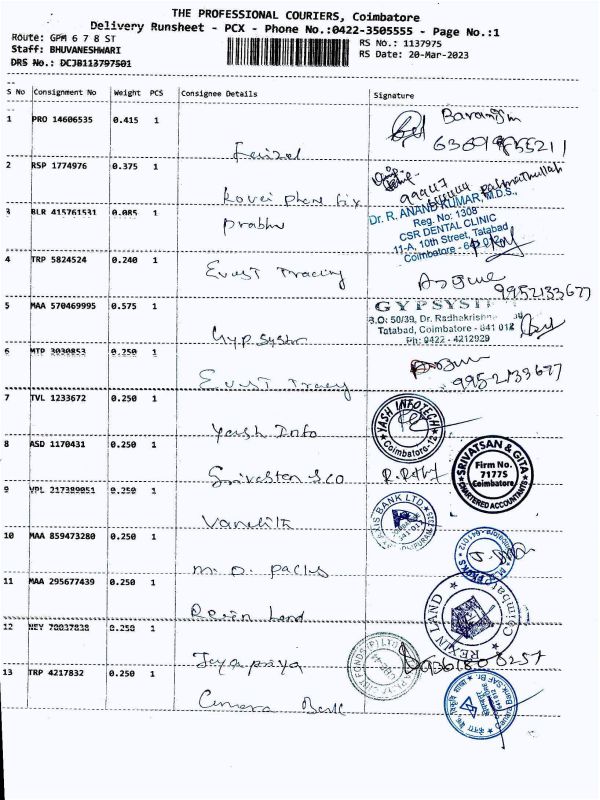 THE PROFESSIONAL COURIERS, Coimbatore
Delivery Runsheet - PCX - Phone No.:0422-3505555 - Page No.:1
Route: GPM 6 7 8 ST
RS No.: 1137975
Staff: BHUVANESHWARI
RS Date: 20-Mar-2023
DRS No.: DCJB113797501
S No Consignment No Weight PCS Consignee Details Signature
1 PRO 14606535 0.415 1
Faizel
2 RSP 1774976 0.375 1
Kovei
99947
Rahmathullah
3 BLR 415761531 0.085 1
Prabhu
Dr. R. ANAND KUMAR, M.D.S.,
Reg. No: 1308
CSR DENTAL CLINIC
11-A, 10th Street, Tatabad
Coimbatore - 641 012
4 TRP 5824524 0.240 1
Evust Tracing
9952133677
5 MAA 570469995 0.575 1
Gyp System
GYPSYSTEM
B.O: 50/39, Dr. Radhakrishnan
Tatabad, Coimbatore - 641 012
Ph: 0422 - 4212929
6 MTP 3030853 0.250 1
Evust Tracy
9952133677
7 TVL 1233672 0.250 1
Yash Info
YASH INFOTECH
Coimbatore-12
8 ASD 1170431 0.250 1
Srivasten & co
SRIVATSAN & GITA
Firm No.
7177S
Coimbatore
CHARTERED ACCOUNTANTS
9 VPL 217389051 0.250 1
AXIS BANK LTD
10 MAA 859473280 0.250 1
M.O. Packs
11 MAA 295677439 0.250 1
Rexin Land
REXIN LAND
Coimbatore
12 KEY 70037838 0.250 1
Jeyapriya
13 TRP 4217832 0.250 1
Canara Bank